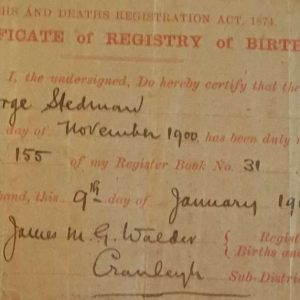 HS AND DEATHS REGISTRATION ACT, 1874.
FICATE OF REGISTRY OF BIRTH
I, the undersigned, Do hereby certify that the
rge Stedman
day of November 1900, has been duly
155 of my Register Book No. 31
hand, this 9th day of January 19
James M. G. Walder { Regist
Births and
Cranleigh Sub-District